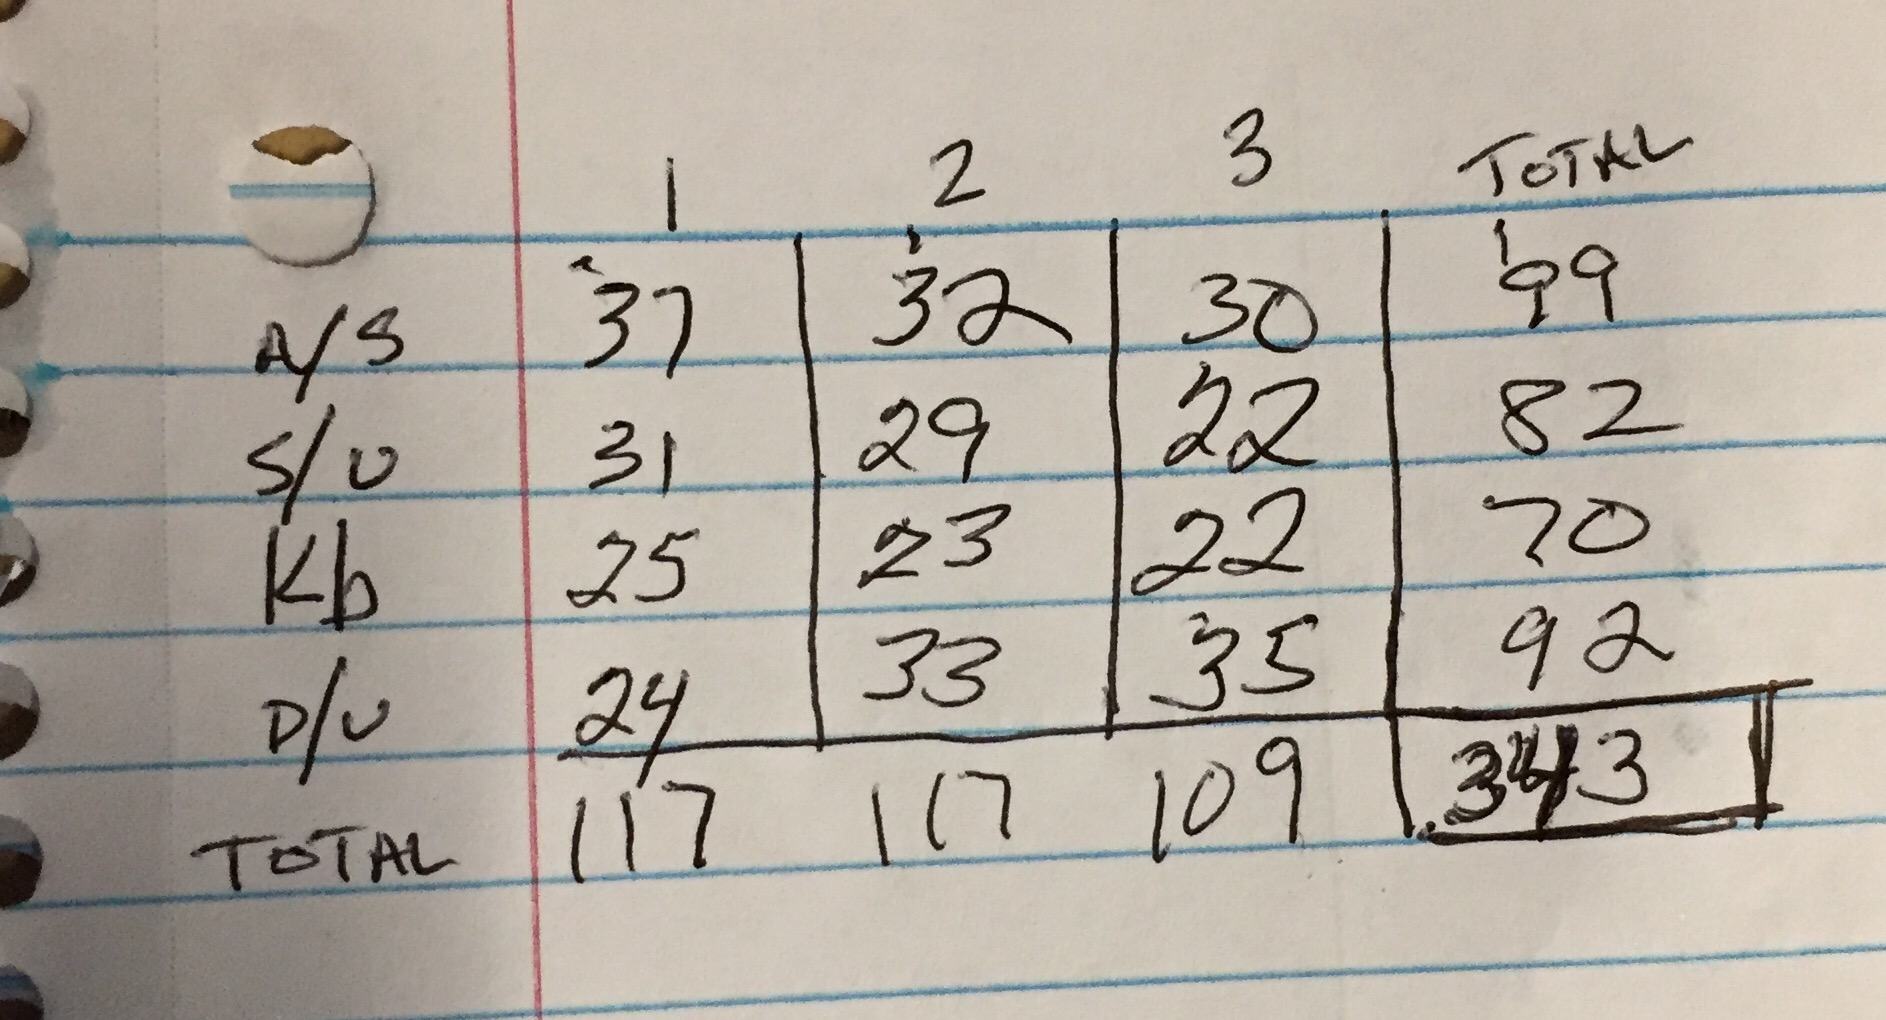 1 2 3 TOTAL
A/S 37 32 30 99
S/U 31 29 22 82
Kb 25 23 22 70
D/U 24 33 35 92
TOTAL 117 117 109 343